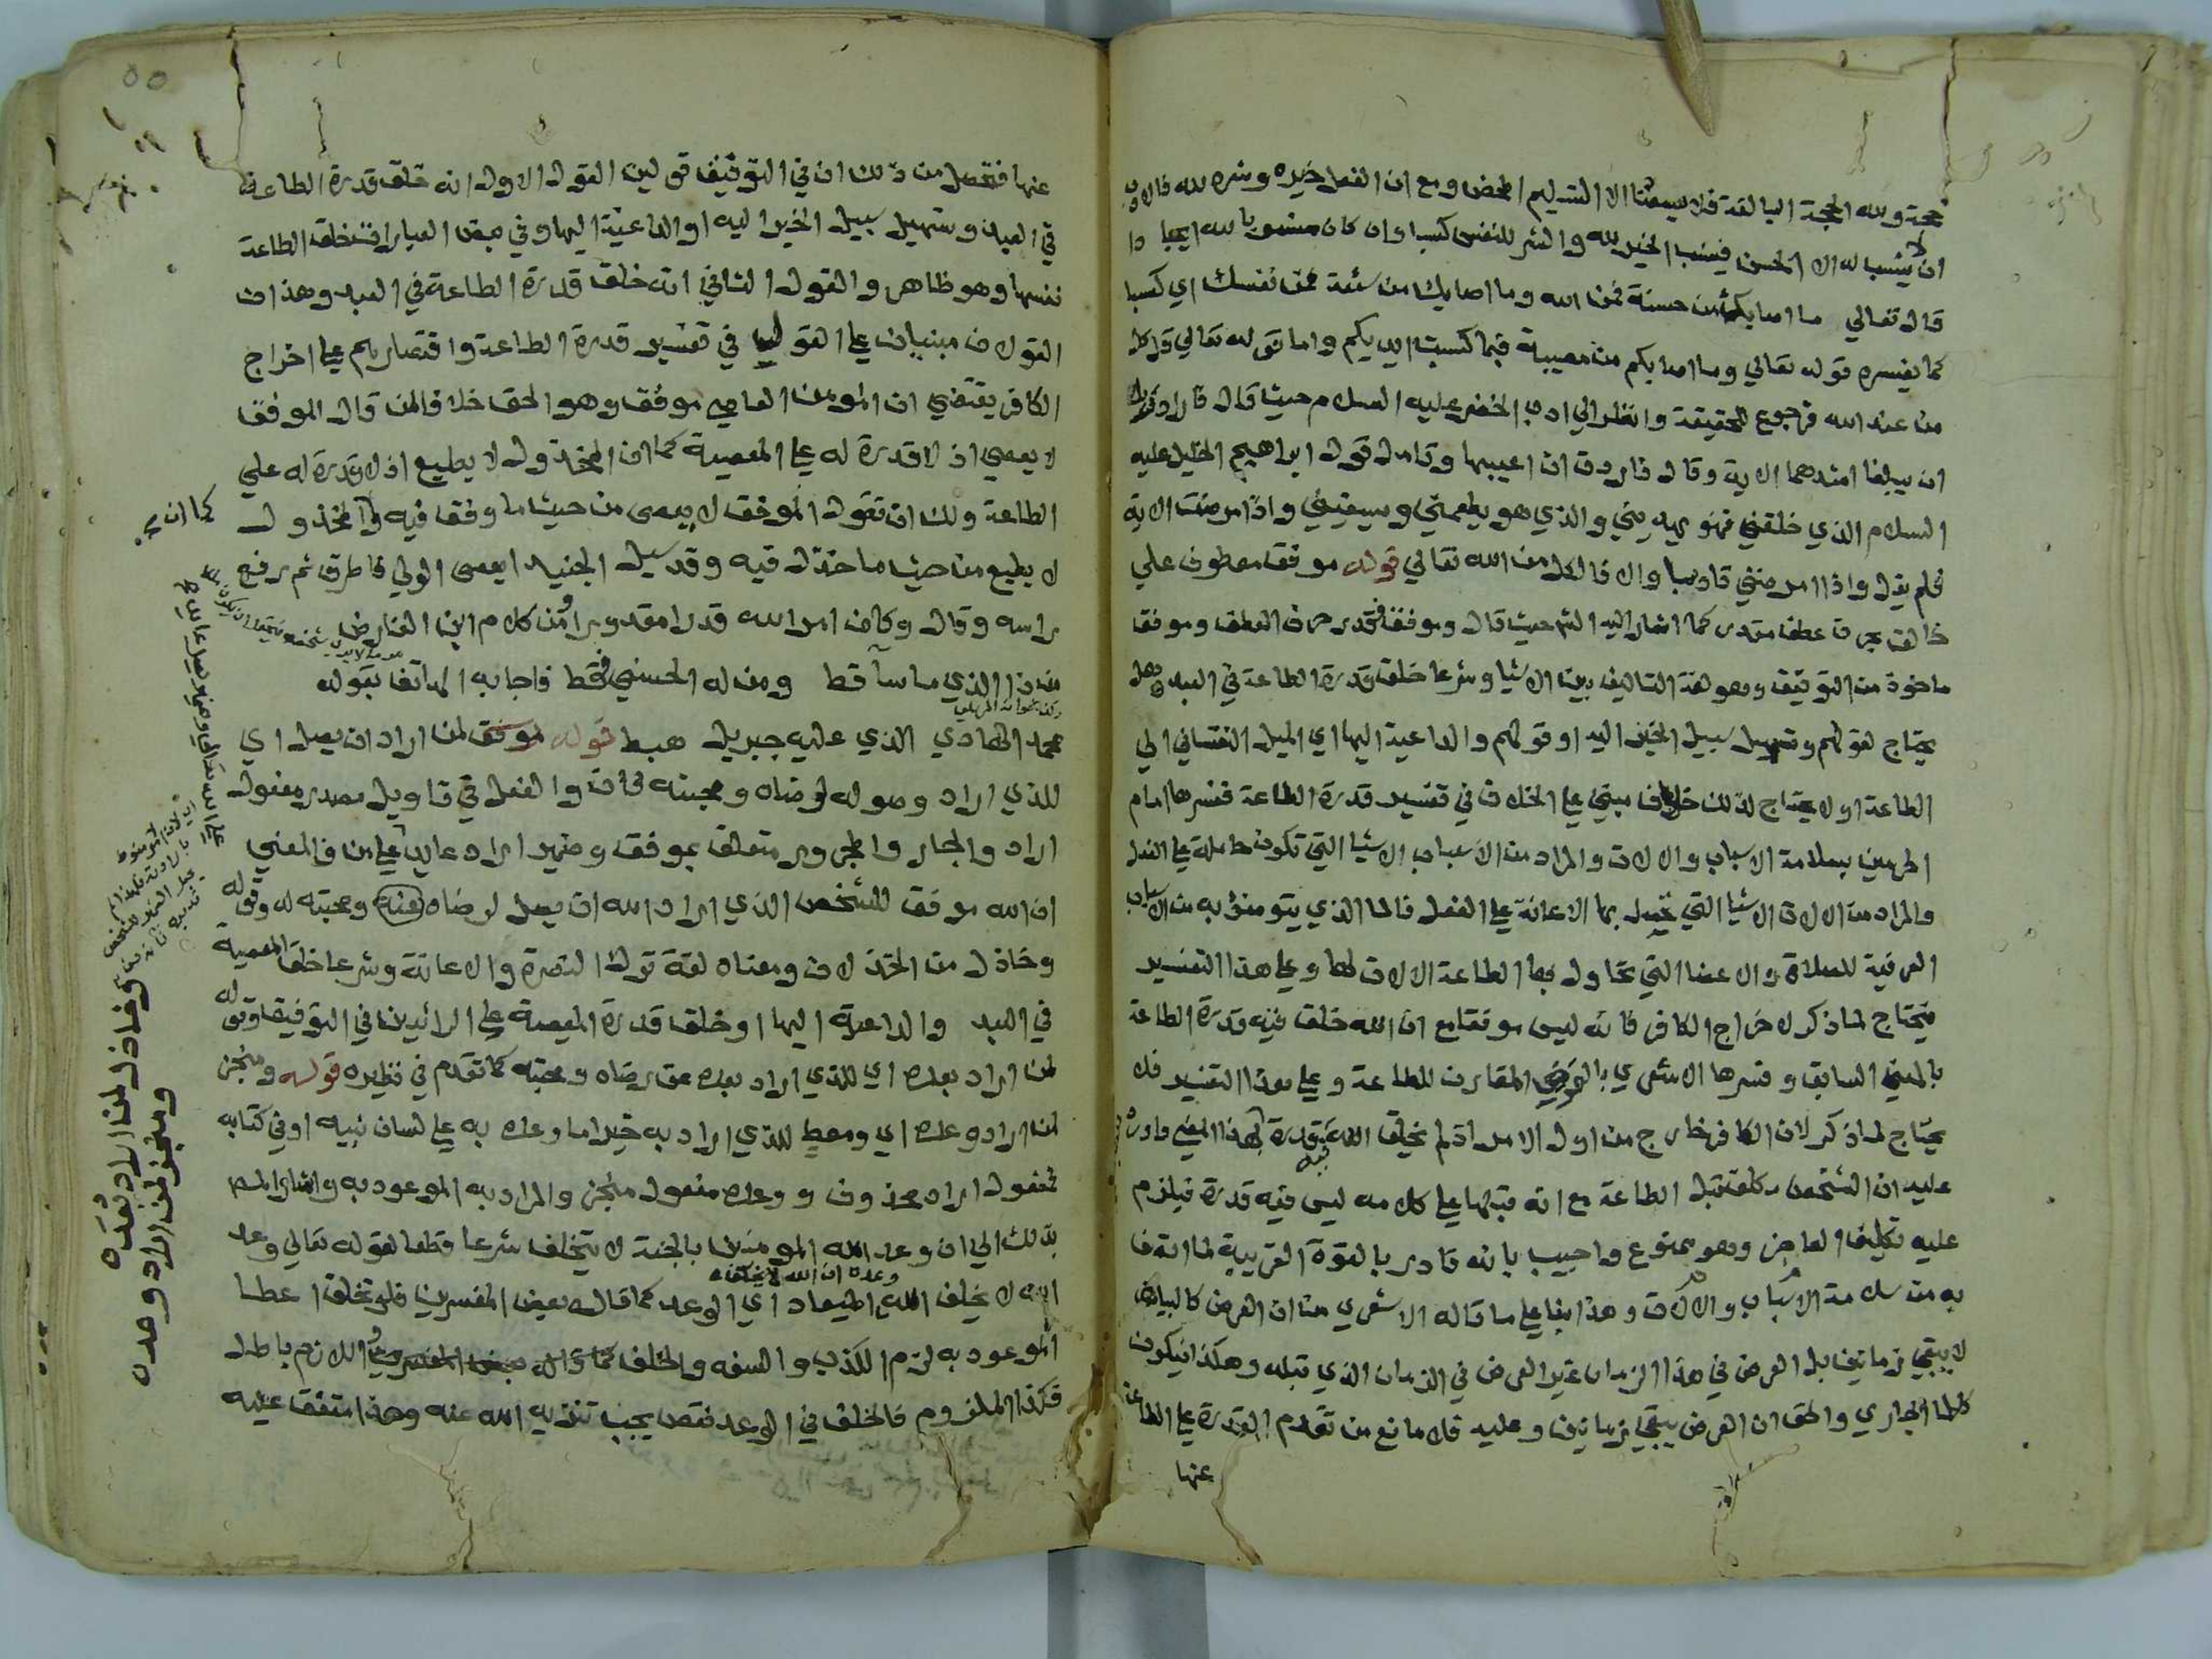 حجة ولله الحجة البالغة فلا يسعنا الا التسليم المحض ومع ان الفعل خيره وشره لله فالادب
ان لا ينسب له الا الحسن فينسب الخير لله والشر للنفس كسبا وان كان منسوبا لله ايجادا
قال تعالي ما اصابك من حسنة فمن الله وما اصابك من سيئة فمن نفسك اي كسبا
كما يفسره قوله تعالي وما اصابكم من مصيبة فبما كسبت ايديكم واما قوله تعالي قل كل
من عند الله فرجوع للحقيقة وانظر الي ادب الخضر عليه السلام حيث قال فاراد ربك
ان يبلغا اشدهما الاية وقال فاردت ان اعيبها وتامل قول ابراهيم الخليل عليه
السلام الذي خلقني فهو يهديني والذي هو يطعمني ويسقيني واذا مرضت الاية
فلم يقل واذا امرضني تادبا والا فالكل من الله تعالي قوله موفق معطوف علي
خالق بحرف عطف مقدر كما اشار اليه الش حيث قال وموفق فقدر حرف العطف وموفق
ماخوذ من التوفيق وهو لغة التاليف بين الاشيا وشرعا خلق قدرة الطاعة في العبد وهل
يحتاج لقولهم وتسهيل سبيل الخير اليه او قولهم والداعية اليها اي الميل النفساني الي
الطاعة او لا يحتاج لذلك خلاف مبني علي الخلاف في تفسير قدرة الطاعة ففسرها امام
الحرمين بسلامة الاسباب والالات والمراد من الاسباب الاشيا التي تكون حاملة علي الفعل
والمراد من الالات الاشيا التي تحصل بها الاعانة علي الفعل فالما الذي يتوضؤ به من الاسباب
العرفية للصلاة والاعضا التي تحاول بها الطاعة الالات لها وعلي هذا التفسير
فيحتاج لما ذكر لاخراج الكافر فانه ليس موفقا مع ان الله خلق فيه قدرة الطاعة
بالمعني السابق وفسرها الاشعري بالعرض المقارن للطاعة وعلي هذا التفسير فلا
يحتاج لما ذكر لان الكافر خارج من اول الامر اذ لم يخلق الله فيه قدرة بهذا المعني واورد
عليه ان الشخص يكلف قبل الطاعة مع انه قبلها علي كلامه ليس فيه قدرة فيلزم
عليه تكليف العاجز وهو ممنوع واجيب بانه قادر بالقوة القريبة لما اتصف
به من سلامة الاسباب والالات وهذا بنا علي ما قاله الاشعري من ان العرض كالبياض
لا يبقي زمانين بل العرض في هذا الزمان غير العرض في الزمان الذي قبله وهكذا فيكون
كالما الجاري والحق ان العرض يبقي زمانين وعليه فلا مانع من تقدم القدرة علي الطاعة
عنها
عنها فتحصل من ذلك ان في التوفيق قولين القول الاول انه خلق قدرة الطاعة
في العبد وتسهيل سبيل الخير اليه او الداعية اليها وفي بعض العبارات خلق الطاعة
نفسها وهو ظاهر والقول الثاني انه خلق قدرة الطاعة في العبد وهذان
القولان مبنيان علي القولين في تفسير قدرة الطاعة واقتصارهم علي اخراج
الكافر يقتضي ان المومن العاصي موفق وهو الحق خلافا لمن قال الموفق
لا يعصي اذ لا قدرة له علي المعصية كما ان المخذول لا يطيع اذ لا قدرة له علي
الطاعة ولك ان تقول الموفق لا يعصي من حيث ما وفق فيه والمخذول
لا يطيع من حيث ما خذل فيه وقد سيل الجنيد ايعصي الولي فاطرق ثم رفع
راسه وقال وكان امر الله قدرا مقدورا ومن كلام ابن الفارض
من ذا الذي ما ساء قط ومن له الحسني فقط فاجابه الهاتف بقوله
محمد الهادي الذي عليه جبريل هبط قوله موفق لمن اراد ان يصل اي
للذي اراد وصوله لرضاه ومحبته فان والفعل في تاويل مصدر مفعول
اراد والجار والمجرور متعلق بموفق وضمير اراد عايد علي من فالمعني
ان الله موفق للشخص الذي اراد الله ان يصل لرضاه عنه ومحبته له وقوله
وخاذل من الخذلان ومعناه لغة ترك النصرة والاعانة وشرعا خلق المعصية
في العبد والداعية اليها او خلق قدرة المعصية علي الرائيين في التوفيق وقوله
لمن اراد بعده اي للذي اراد بعده عن رضاه ومحبته كما تقدم في نظيره قوله ومنجز
لمن اراد وعده اي ومعط للذي اراد به خيرا ما وعده به علي لسان نبيه او في كتابه
فمفعول اراد محذوف ووعده مفعول منجز والمراد به الموعود به واشار المص
بذلك الي ان وعد الله المومنين بالجنة لا يتخلف شرعا قطعا لقوله تعالي وعد
الله لا يخلف الله الميعاد اي الوعد كما قاله بعض المفسرين فلو تخلف اعطا
الموعود به لزم الكذب والسفه والخلف واللازم باطل
فكذا الملزوم فالخلف في الوعد نقص يجب تنزيه الله عنه وهذا متفق عليه
وعده ان الله لا يخلف
كما ان
وخاذل لمن اراد بعده
ومنجز لمن اراد وعده